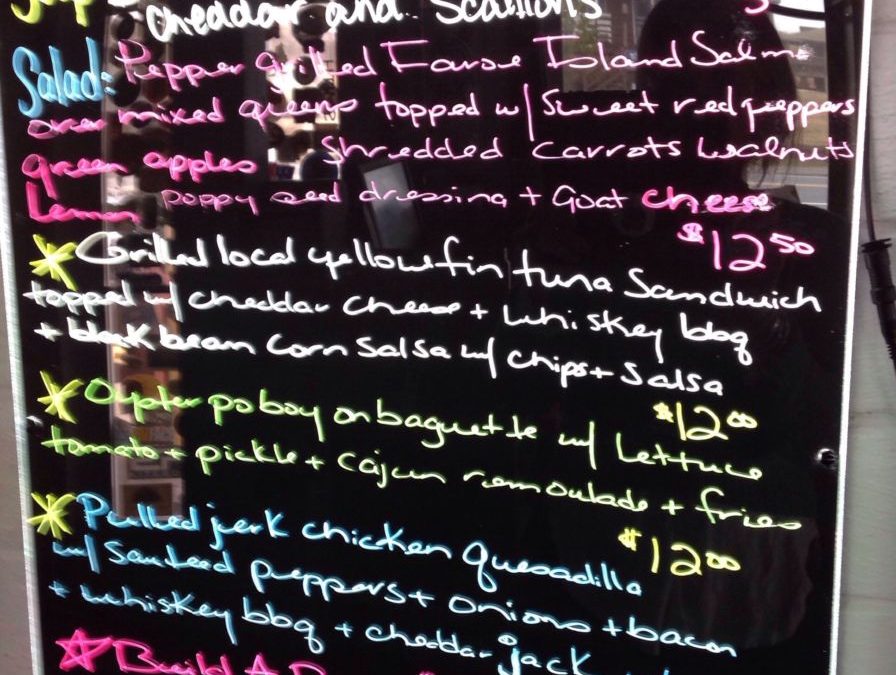 cheddar and scallions
Salad: Pepper Grilled Faroe Island Salmon
over mixed greens topped w/ Sweet red peppers
green apples Shredded carrots walnuts
Lemon poppy seed dressing + Goat cheese
$12.50
* Grilled local yellowfin tuna Sandwich
topped w/ cheddar cheese + whiskey bbq
+ black bean corn salsa w/ chips + salsa
$12.00
* Oyster po boy on baguette w/ lettuce
tomato + pickle + cajun remoulade + fries
$12.00
* Pulled jerk chicken quesadilla
w/ Sauteed peppers + onions + bacon
+ whiskey bbq + cheddar jack
Build A